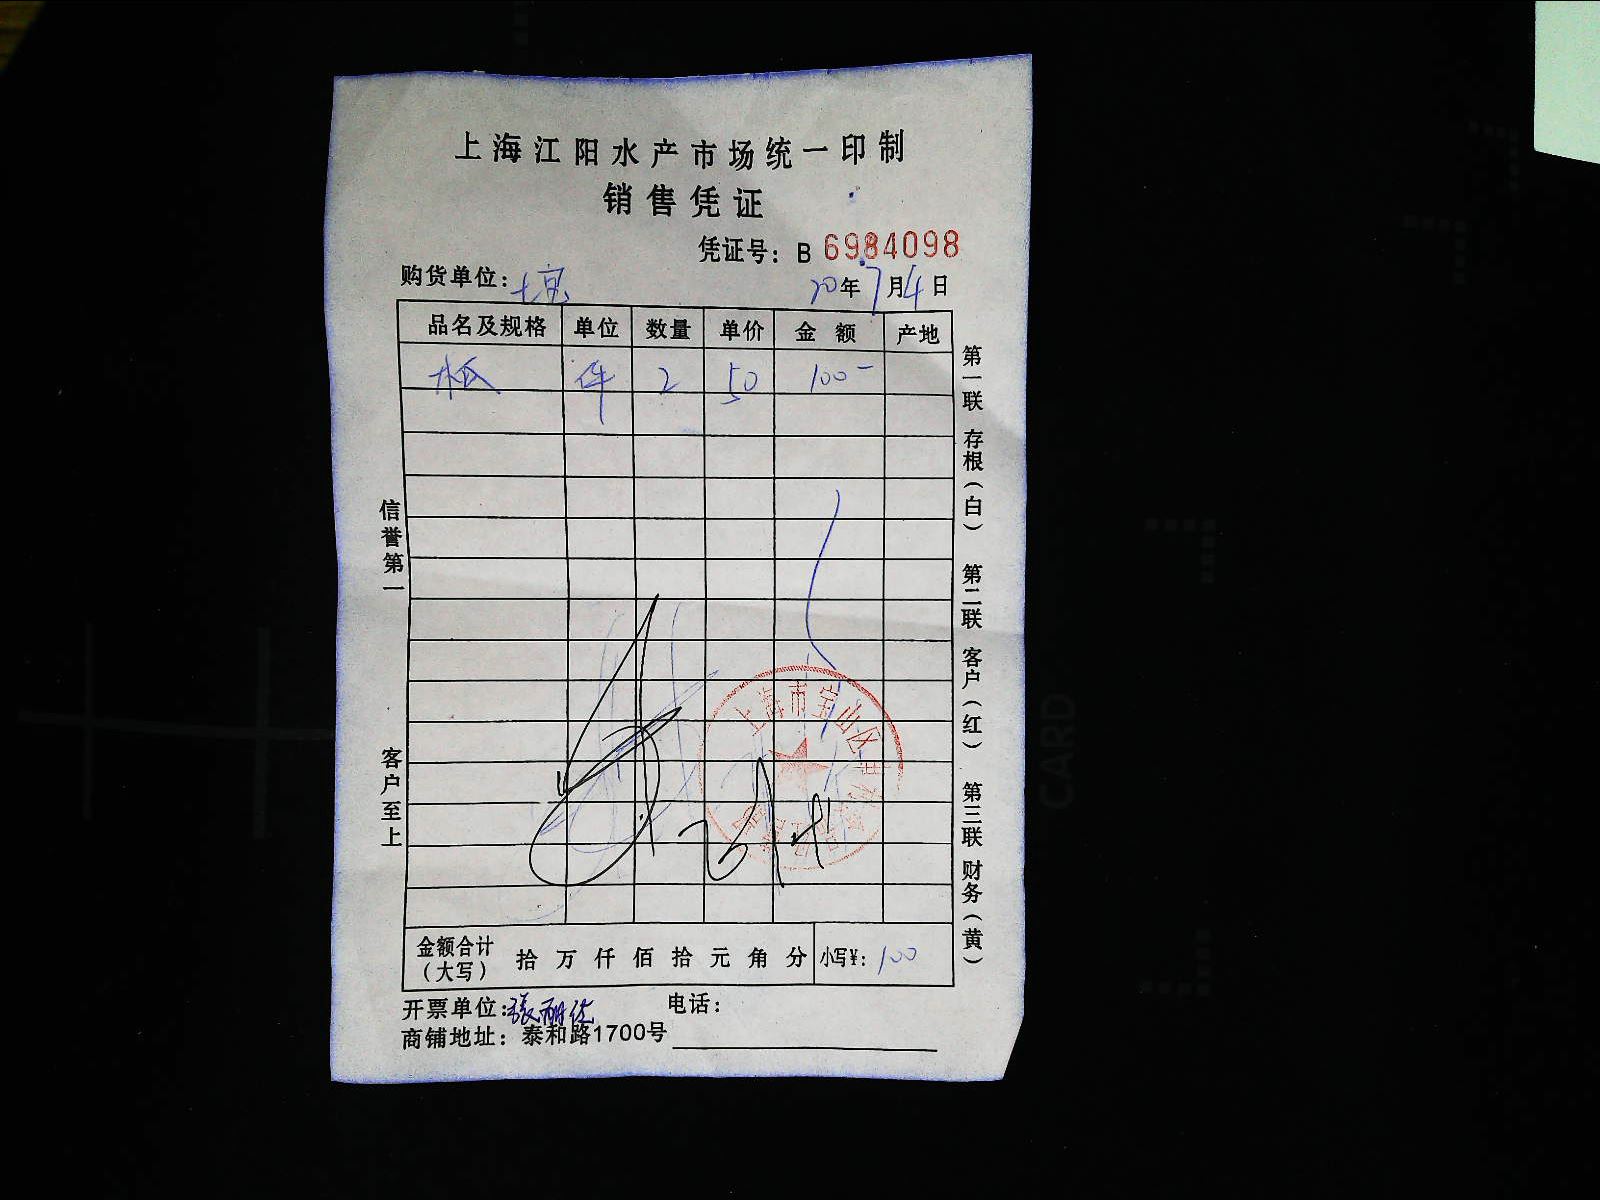 上海江阳水产市场统一印制
销售凭证
凭证号：B 6984098
购货单位：
20年7月4日
品名及规格 单位 数量 单价 金额 产地
木瓜 件 2 50 100-
信誉第一
客户至上
第一联 存根（白） 第二联 客户（红） 第三联 财务（黄）
上海市宝山区
金额合计（大写） 拾 万 仟 佰 拾 元 角 分 小写¥：100
开票单位：張丽仕 电话：
商铺地址：泰和路1700号
CARD